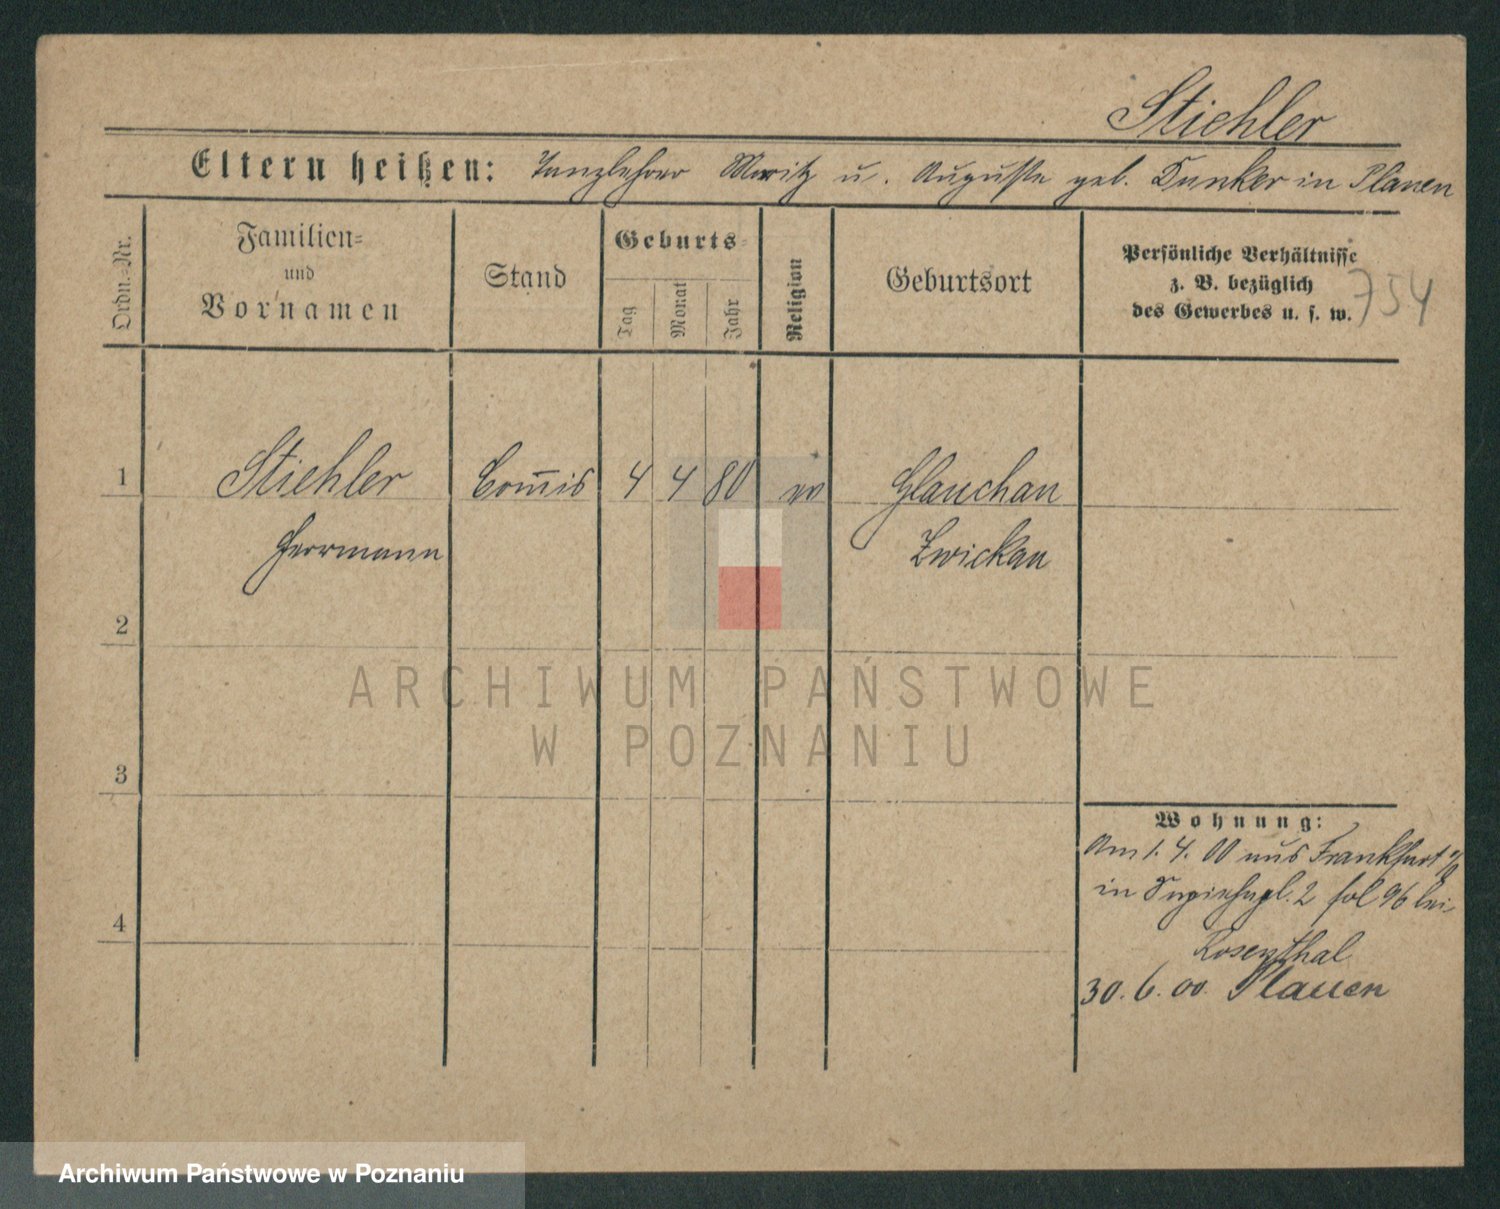 Stiehler
Eltern heißen: Tanzlehrer Moritz u. Auguste geb. Dunker in Plauen
Ordn.-Nr.
Familien-
und
Vornamen
Stand
Geburts-
Tag
Monat
Jahr
Religion
Geburtsort
Persönliche Verhältnisse
z. B. bezüglich
des Gewerbes u. s. w.
754
1 Stiehler Com̅is 4 4 80 ev Glauchau
Herrmann Zwickau
2
3
4
ARCHIWUM PAŃSTWOWE
W POZNANIU
Wohnung:
Am 1. 4. 00 aus Frankfurt a/O
in 2 fol 96 bei
Rosenthal
30. 6. 00. Plauen
Archiwum Państwowe w Poznaniu